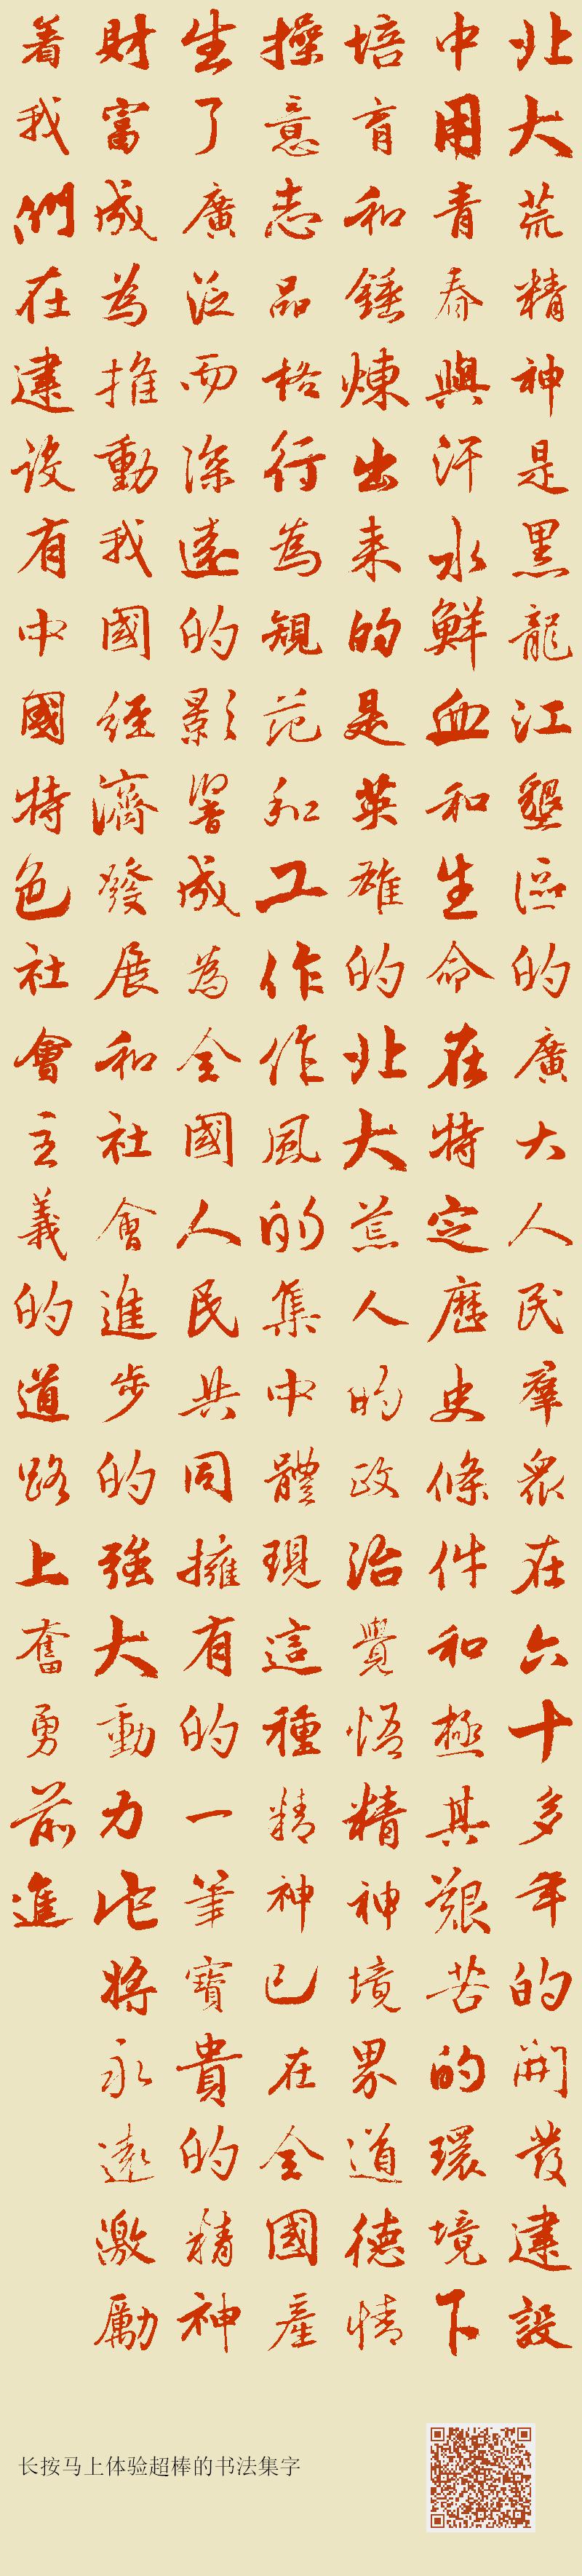 北大荒精神是黑龍江墾區的廣大人民群衆在六十多年的開發建設
中用青春與汗水鮮血和生命在特定歷史條件和極其艱苦的環境下
培育和錘煉出来的是英雄的北大荒人的政治覺悟精神境界道德情
操意志品格行為規范和工作作風的集中體現這種精神已在全國產
生了廣泛而深遠的影響成為全國人民共同擁有的一筆寶貴的精神
財富成為推動我國經濟發展和社會進步的強大動力它將永遠激勵
着我們在建設有中國特色社會主義的道路上奮勇前進
长按马上体验超棒的书法集字